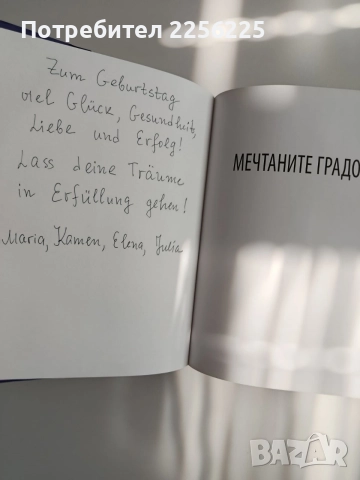 Потребител 2256225
Zum Geburtstag
viel Glück, Gesundheit,
Liebe und Erfolg!
Lass deine Träume
in Erfüllung gehen!
Maria, Kamen, Elena, Julia
МЕЧТАНИТЕ ГРАДО
BAZAR